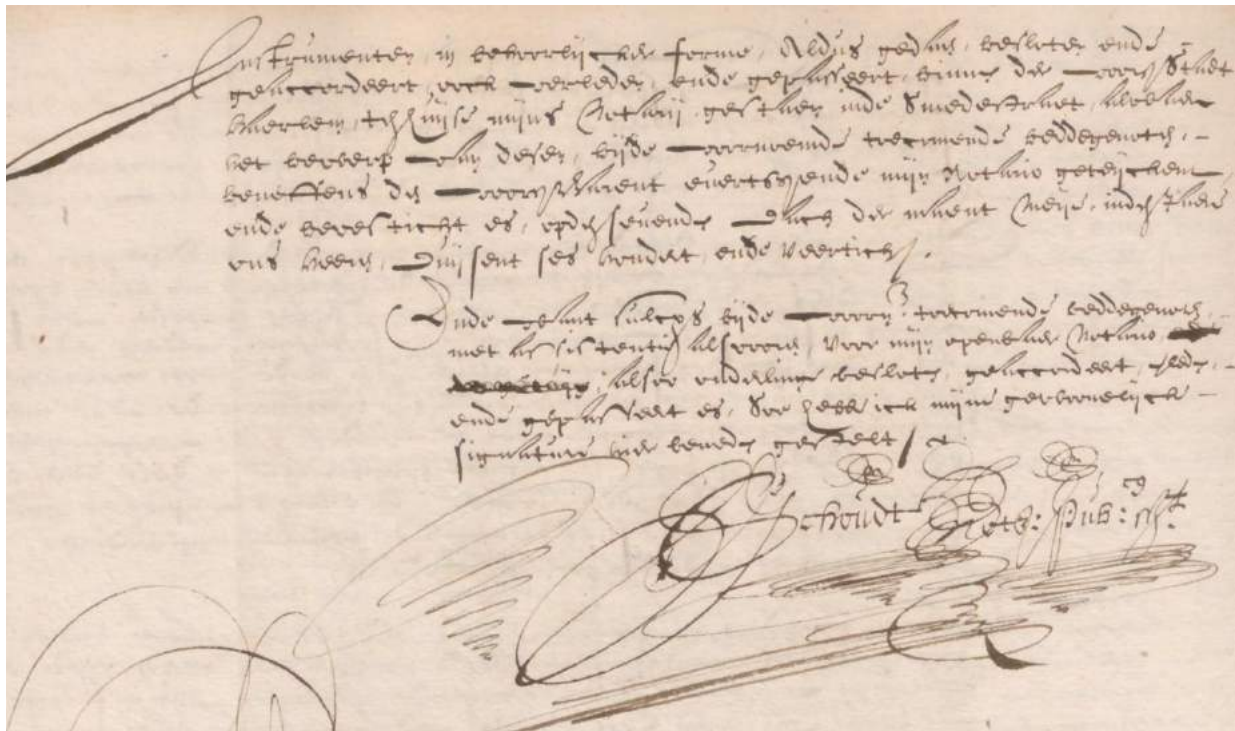 Instrumenten, in behoorlijcker forme, Aldus gedaen, besloten ende
geaccordeert, oock verleden, ende gepasseert, binnen der voors. Stadt
Haerlem, ten huijse mijns Notarij gestaen inde Smedestraet, alwaer
het ... van desen, bijde voornoemde trecmende beddegenoten, -
beneffens den voors. ... evertss, ende mijn Notario geteijckent
ende bevesticht es, opden sevende dach der maent Meije, inden Jaere
ons heeren, Duijsent ses hondert ende veertich.
Ende want sulcxs bijde voorn. ... beddegenoten, -
met assistentie als vooren, voor mijn openbaer Notario
alsoo onderlinge besloten, geaccordeert, -
ende gepasseert es, Soo hebbe ick mijne gewoonelijck -
signature hier beneden gestelt /
Schoudt Noth: Pub: